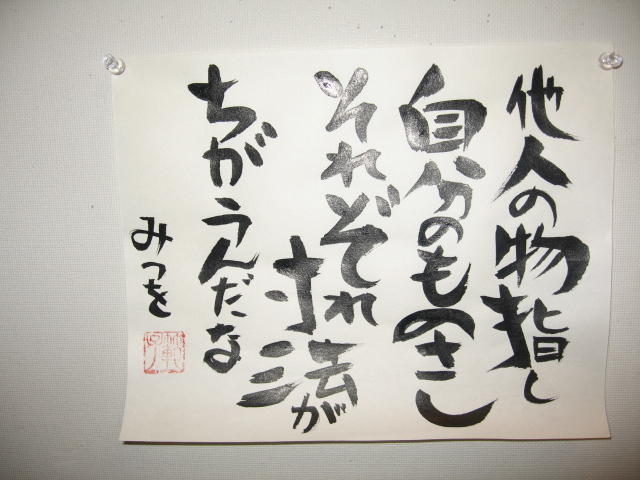 他人の物指し
自分のものさし
それぞれ
寸法が
ちがうんだな
みつを